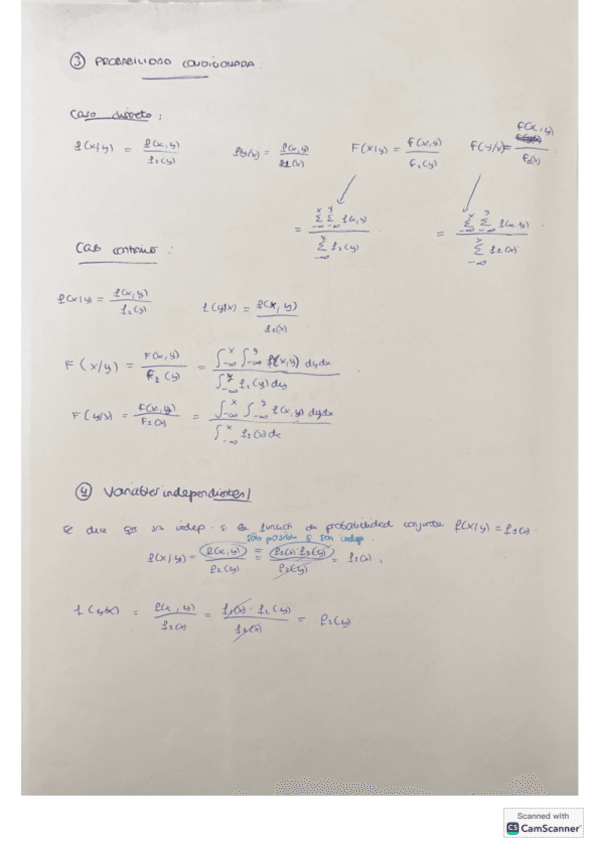 ③ PROBABILIDAD CONDICIONADA.
Caso discreto:
f(x/y) = f(x,y) / f₂(y)   f(y/x) = f(x,y) / f₁(x)   F(x/y) = F(x,y) / F₂(y)   F(y/x) = F(x,y) / F₁(x)
= Σ^x_-∞ Σ^y_-∞ f(x,y) / Σ^y_-∞ f₂(y)   = Σ^x_-∞ Σ^y_-∞ f(x,y) / Σ^x_-∞ f₁(x)
Caso continuo:
f(x/y) = f(x,y) / f₂(y)   f(y/x) = f(x,y) / f₁(x)
F(x/y) = F(x,y) / F₂(y) = ∫^x_-∞ ∫^y_-∞ f(x,y) dydx / ∫^y_-∞ f₂(y) dy
F(y/x) = F(x,y) / F₁(x) = ∫^x_-∞ ∫^y_-∞ f(x,y) dydx / ∫^x_-∞ f₁(x) dx
④ Variables independientes/
Se dice que son indep. si la función de probabilidad conjunta f(x/y) = f₁(x).
sólo posible si son indep.
f(x/y) = f(x,y) / f₂(y) = f₁(x)·f₂(y) / f₂(y) = f₁(x).
f(y/x) = f(x,y) / f₁(x) = f₁(x)·f₂(y) / f₁(x) = f₂(y)
Scanned with
CS CamScanner